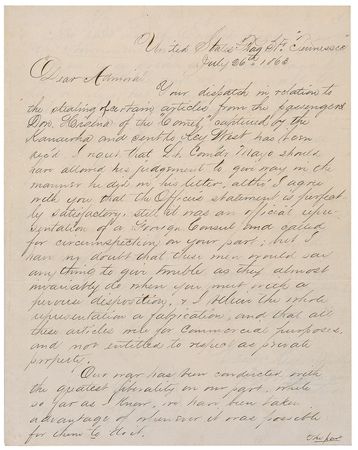 United States Flag Str. "Tennessee"
July 26th 1863
Dear Admiral
Your dispatch in relation to
the stealing of certain articles from the passenger
Don. of the "Comet" captured by the
Kanawha and sent to Key West has been
rec'd. I regret that Lt. Comdr. Mayo should
have allowed his judgement to give way in the
manner he did in his letter, altho' I agree
with you that the Officers statement is perfect-
ly satisfactory. still it was an official repre-
sentation of a Foreign Consul and called
for circumspection on your part; but I
have no doubt that these men would say
anything to give trouble as they almost
invariably do when you meet with a
perverse disposition, & I believe the whole
representation a fabrication, and that all
these articles were for Commercial purposes,
and not entitled to respect as private
property.
Our war has been conducted with
the greatest liberality on our part, while
so far as I know, we have been taken
advantage of whenever it was possible
for them to do it.